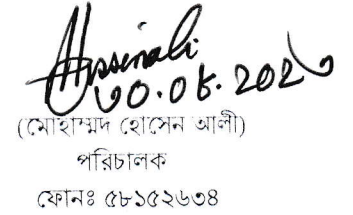 Hossinali
৩০.০৮.২০২৩
(মোহাম্মদ হোসেন আলী)
পরিচালক
ফোনঃ ৫৮১৫২৬৩৪